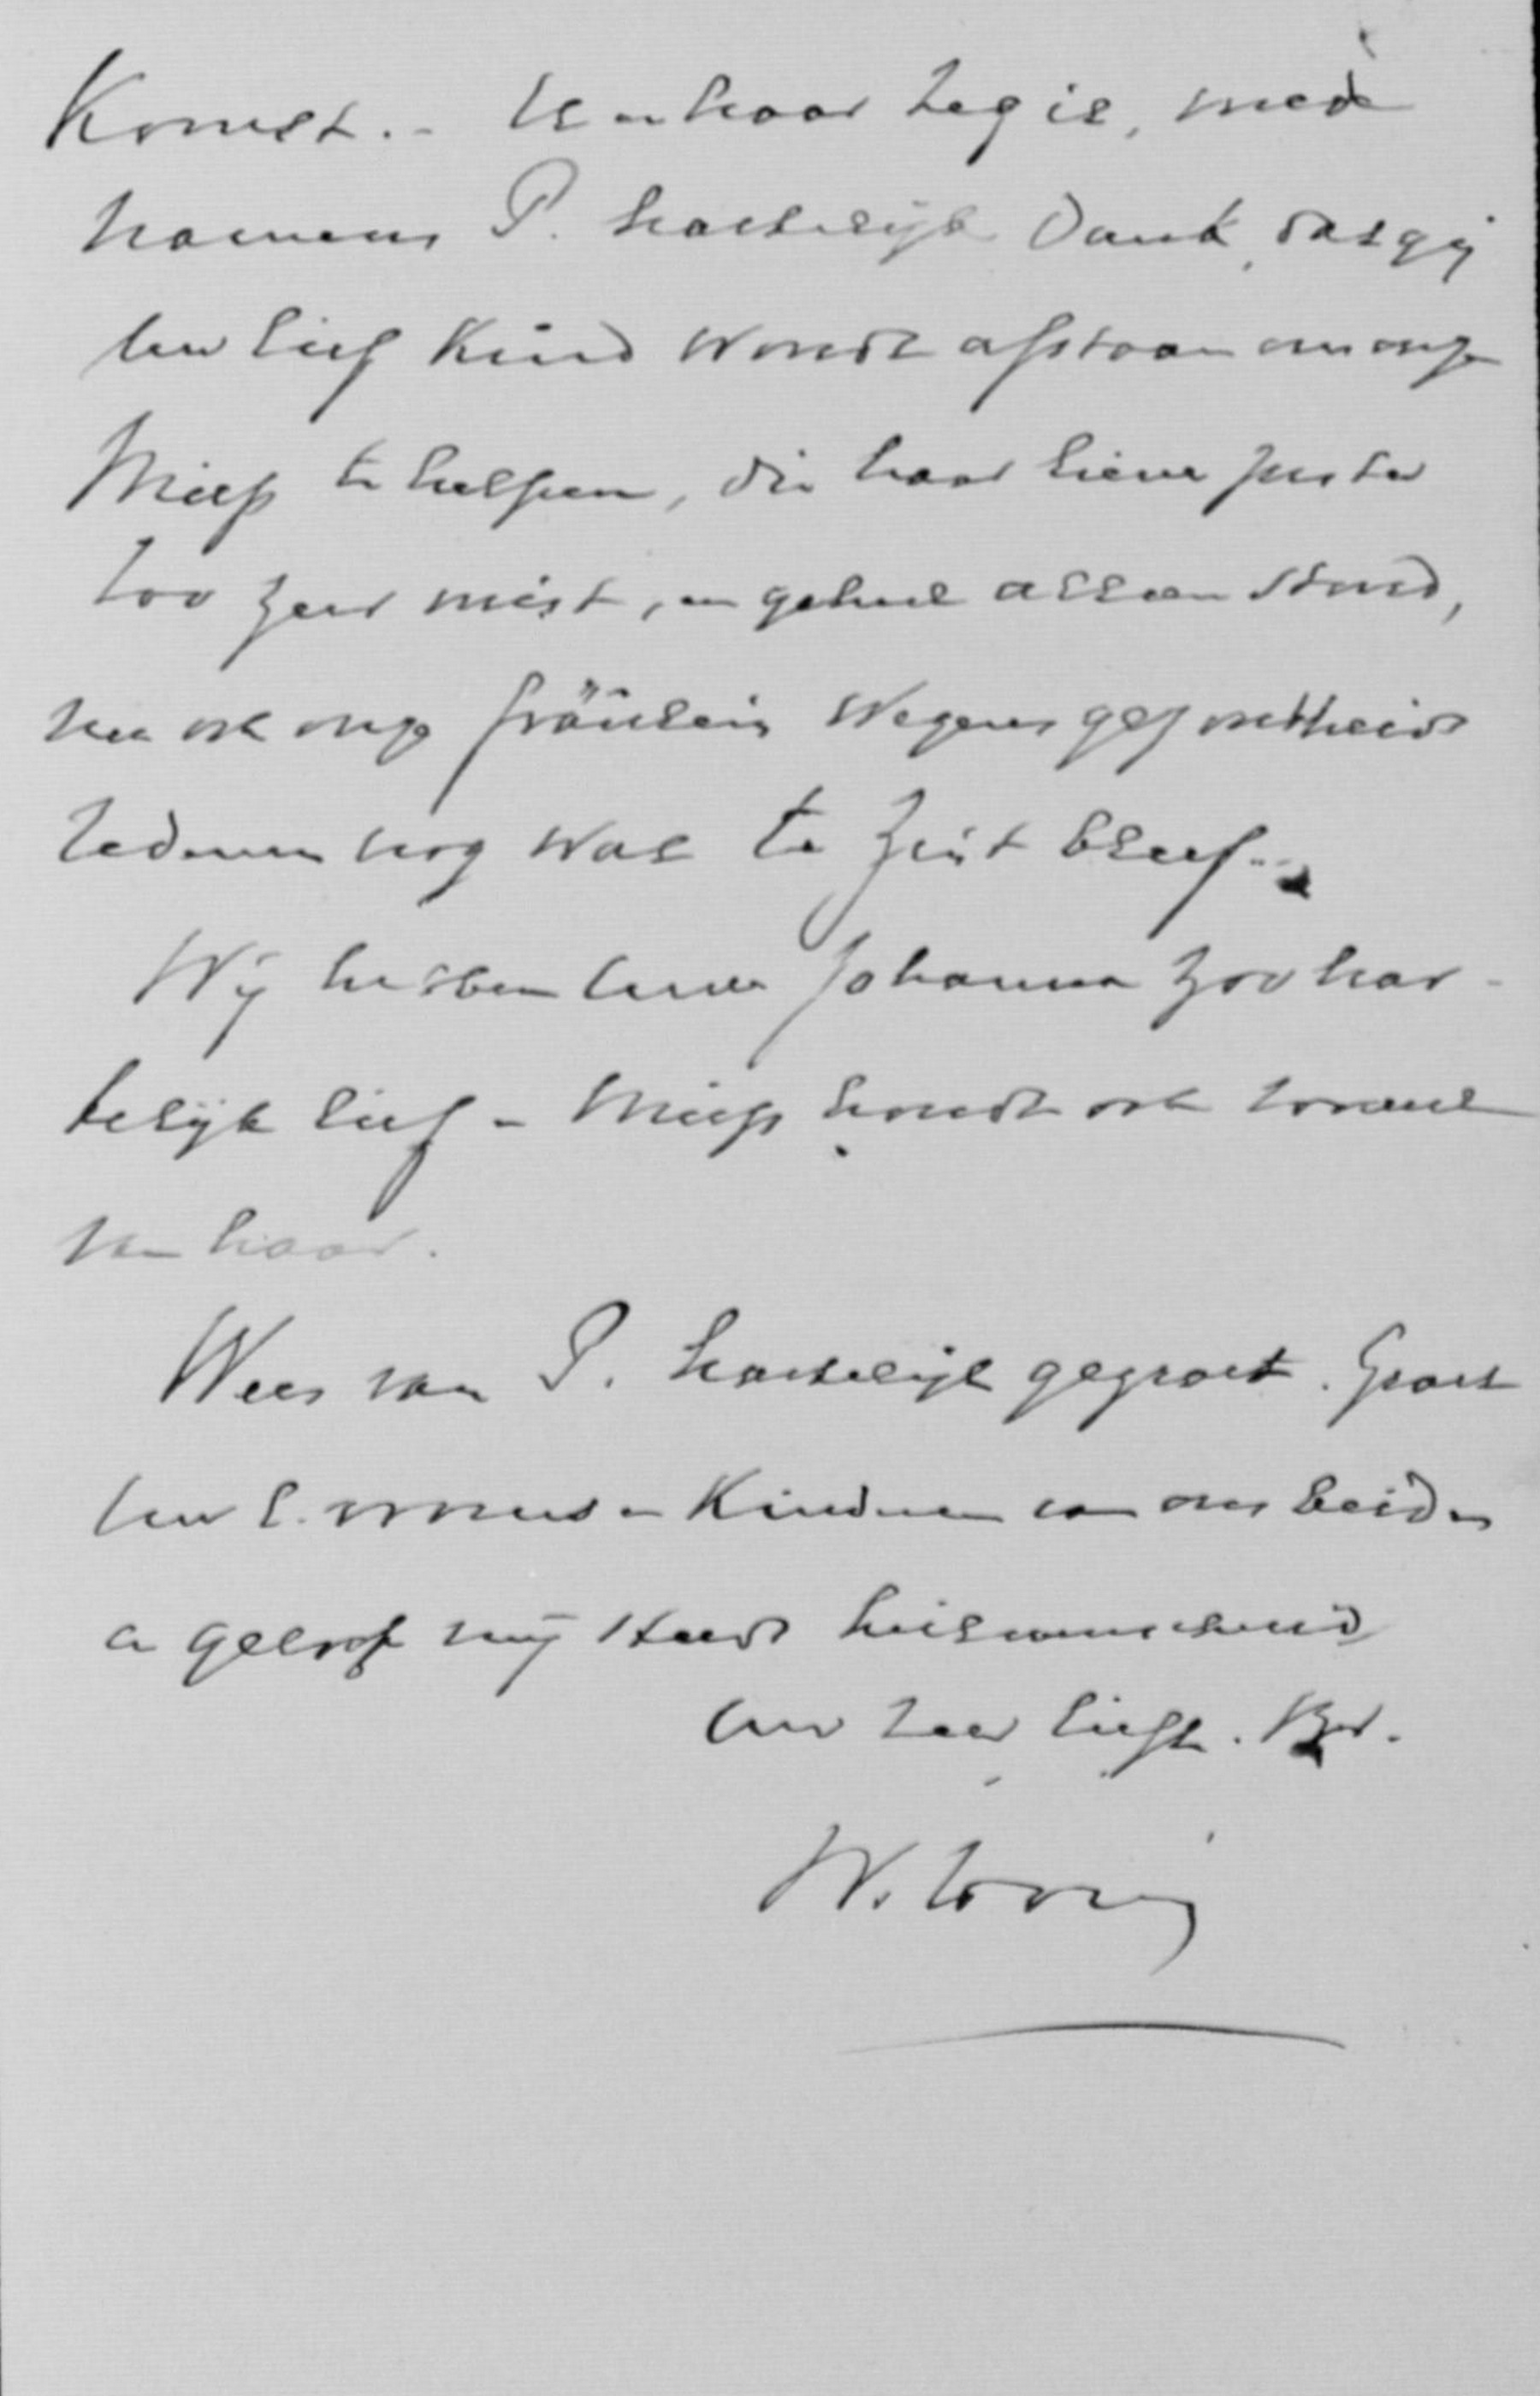 komst. - U en haar zeg ik, mede
namens P. hartelijk dank, dat gij
Uw lief kind wondt afstaan om onze
Miep te helpen, die haar lieve zuster
zoo zeer mist, en geheel alleen stond,
nu ook onze Fräulein wegens gezondheids
redenen nog wat te Zeist bleef. -
Wij hebben Uwe Johanna zoo har-
telijk lief - Miep houdt ook zooveel
van haar.
Wees van P. hartelijk gegroet. Groet
Uw l. vrouw en kinderen van ons beiden
en geloof mij steeds heilwenschend
Uw zeer liefh. Br.
W.